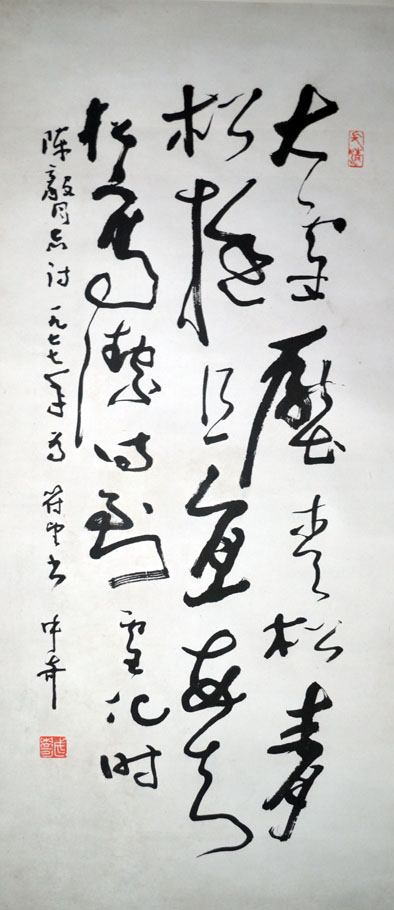 大雪壓青松青
松挺且直要知
松高潔待到雪化时
陈毅同志诗 一九七七年 为 符 书 中奇